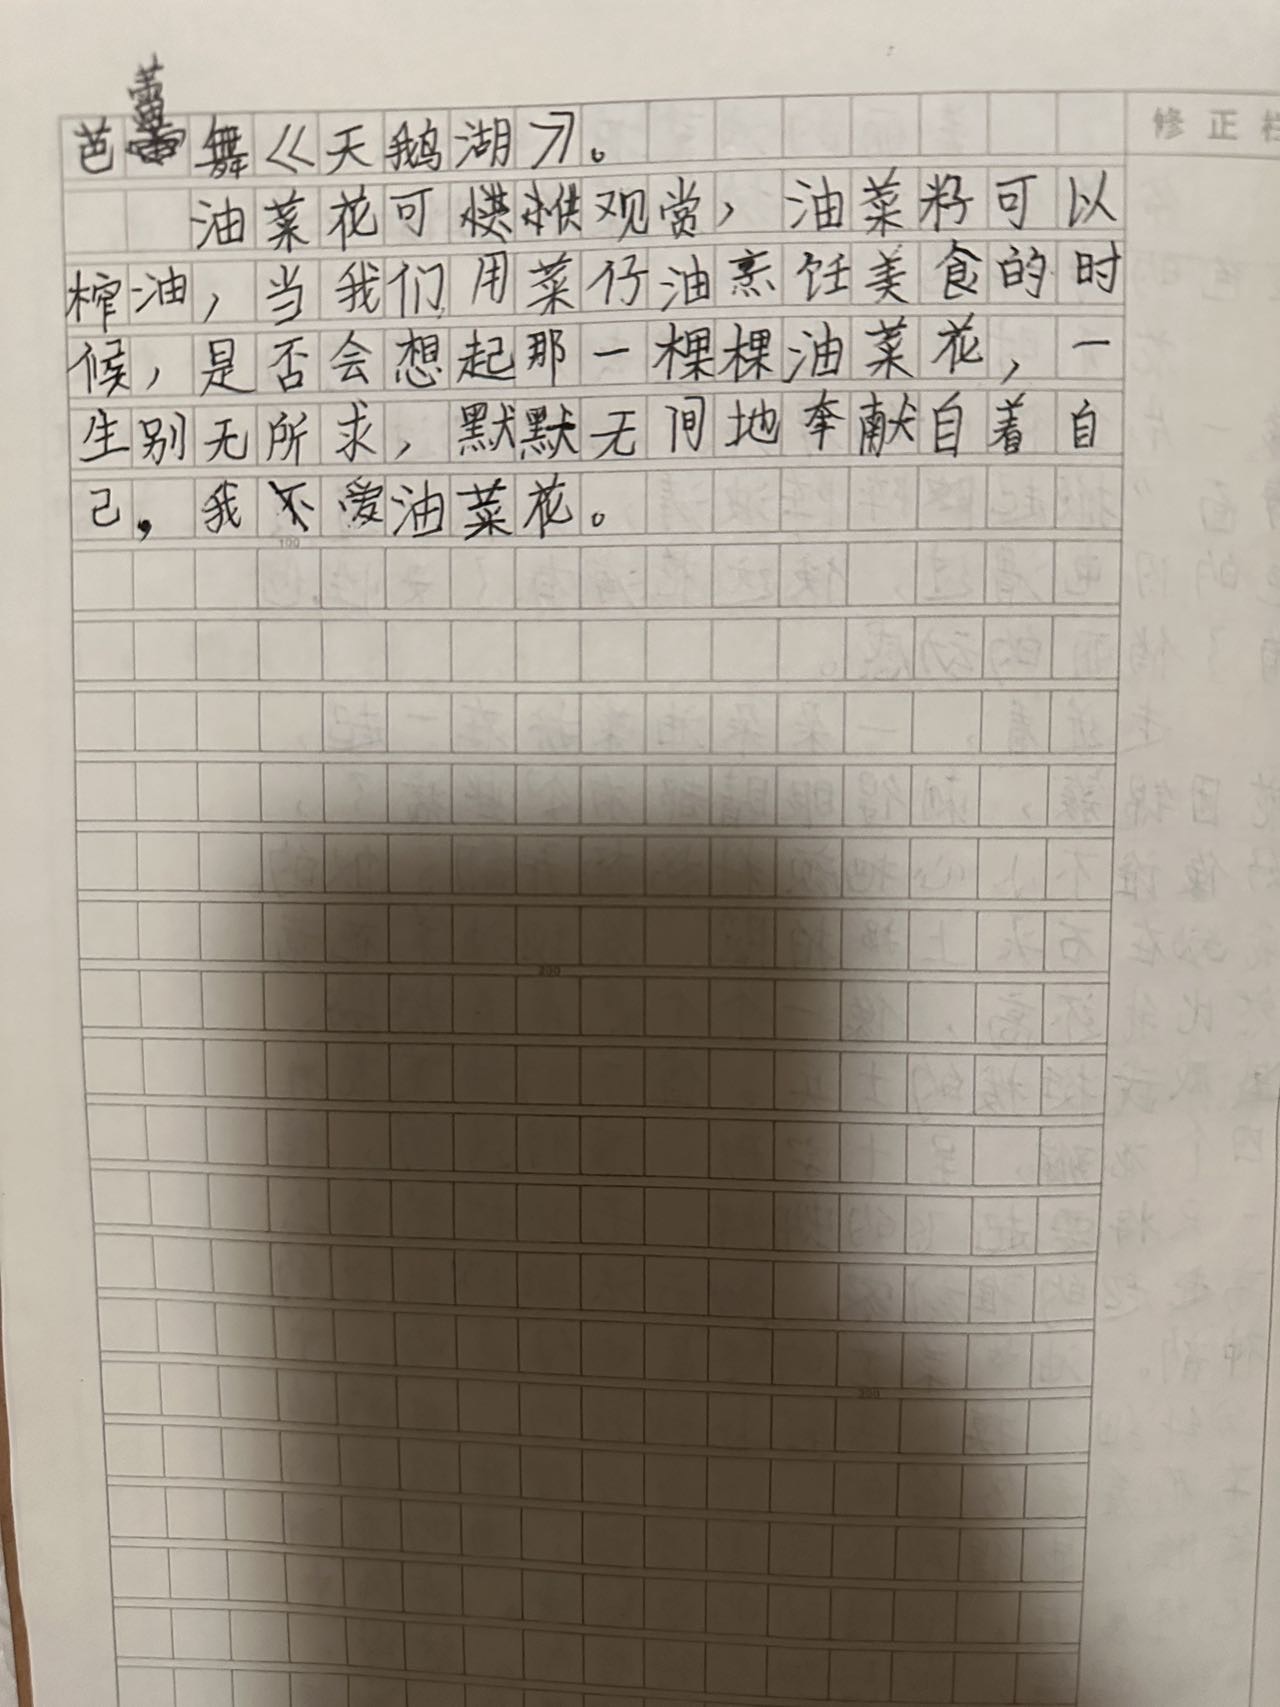 芭蕾舞《天鹅湖》。 修正栏
油菜花可供观赏，油菜籽可以
榨油，当我们用菜仔油烹饪美食的时
候，是否会想起那一棵棵油菜花，一
生别无所求，默默无闻地奉献自着自
己。我爱油菜花。
100
200
300